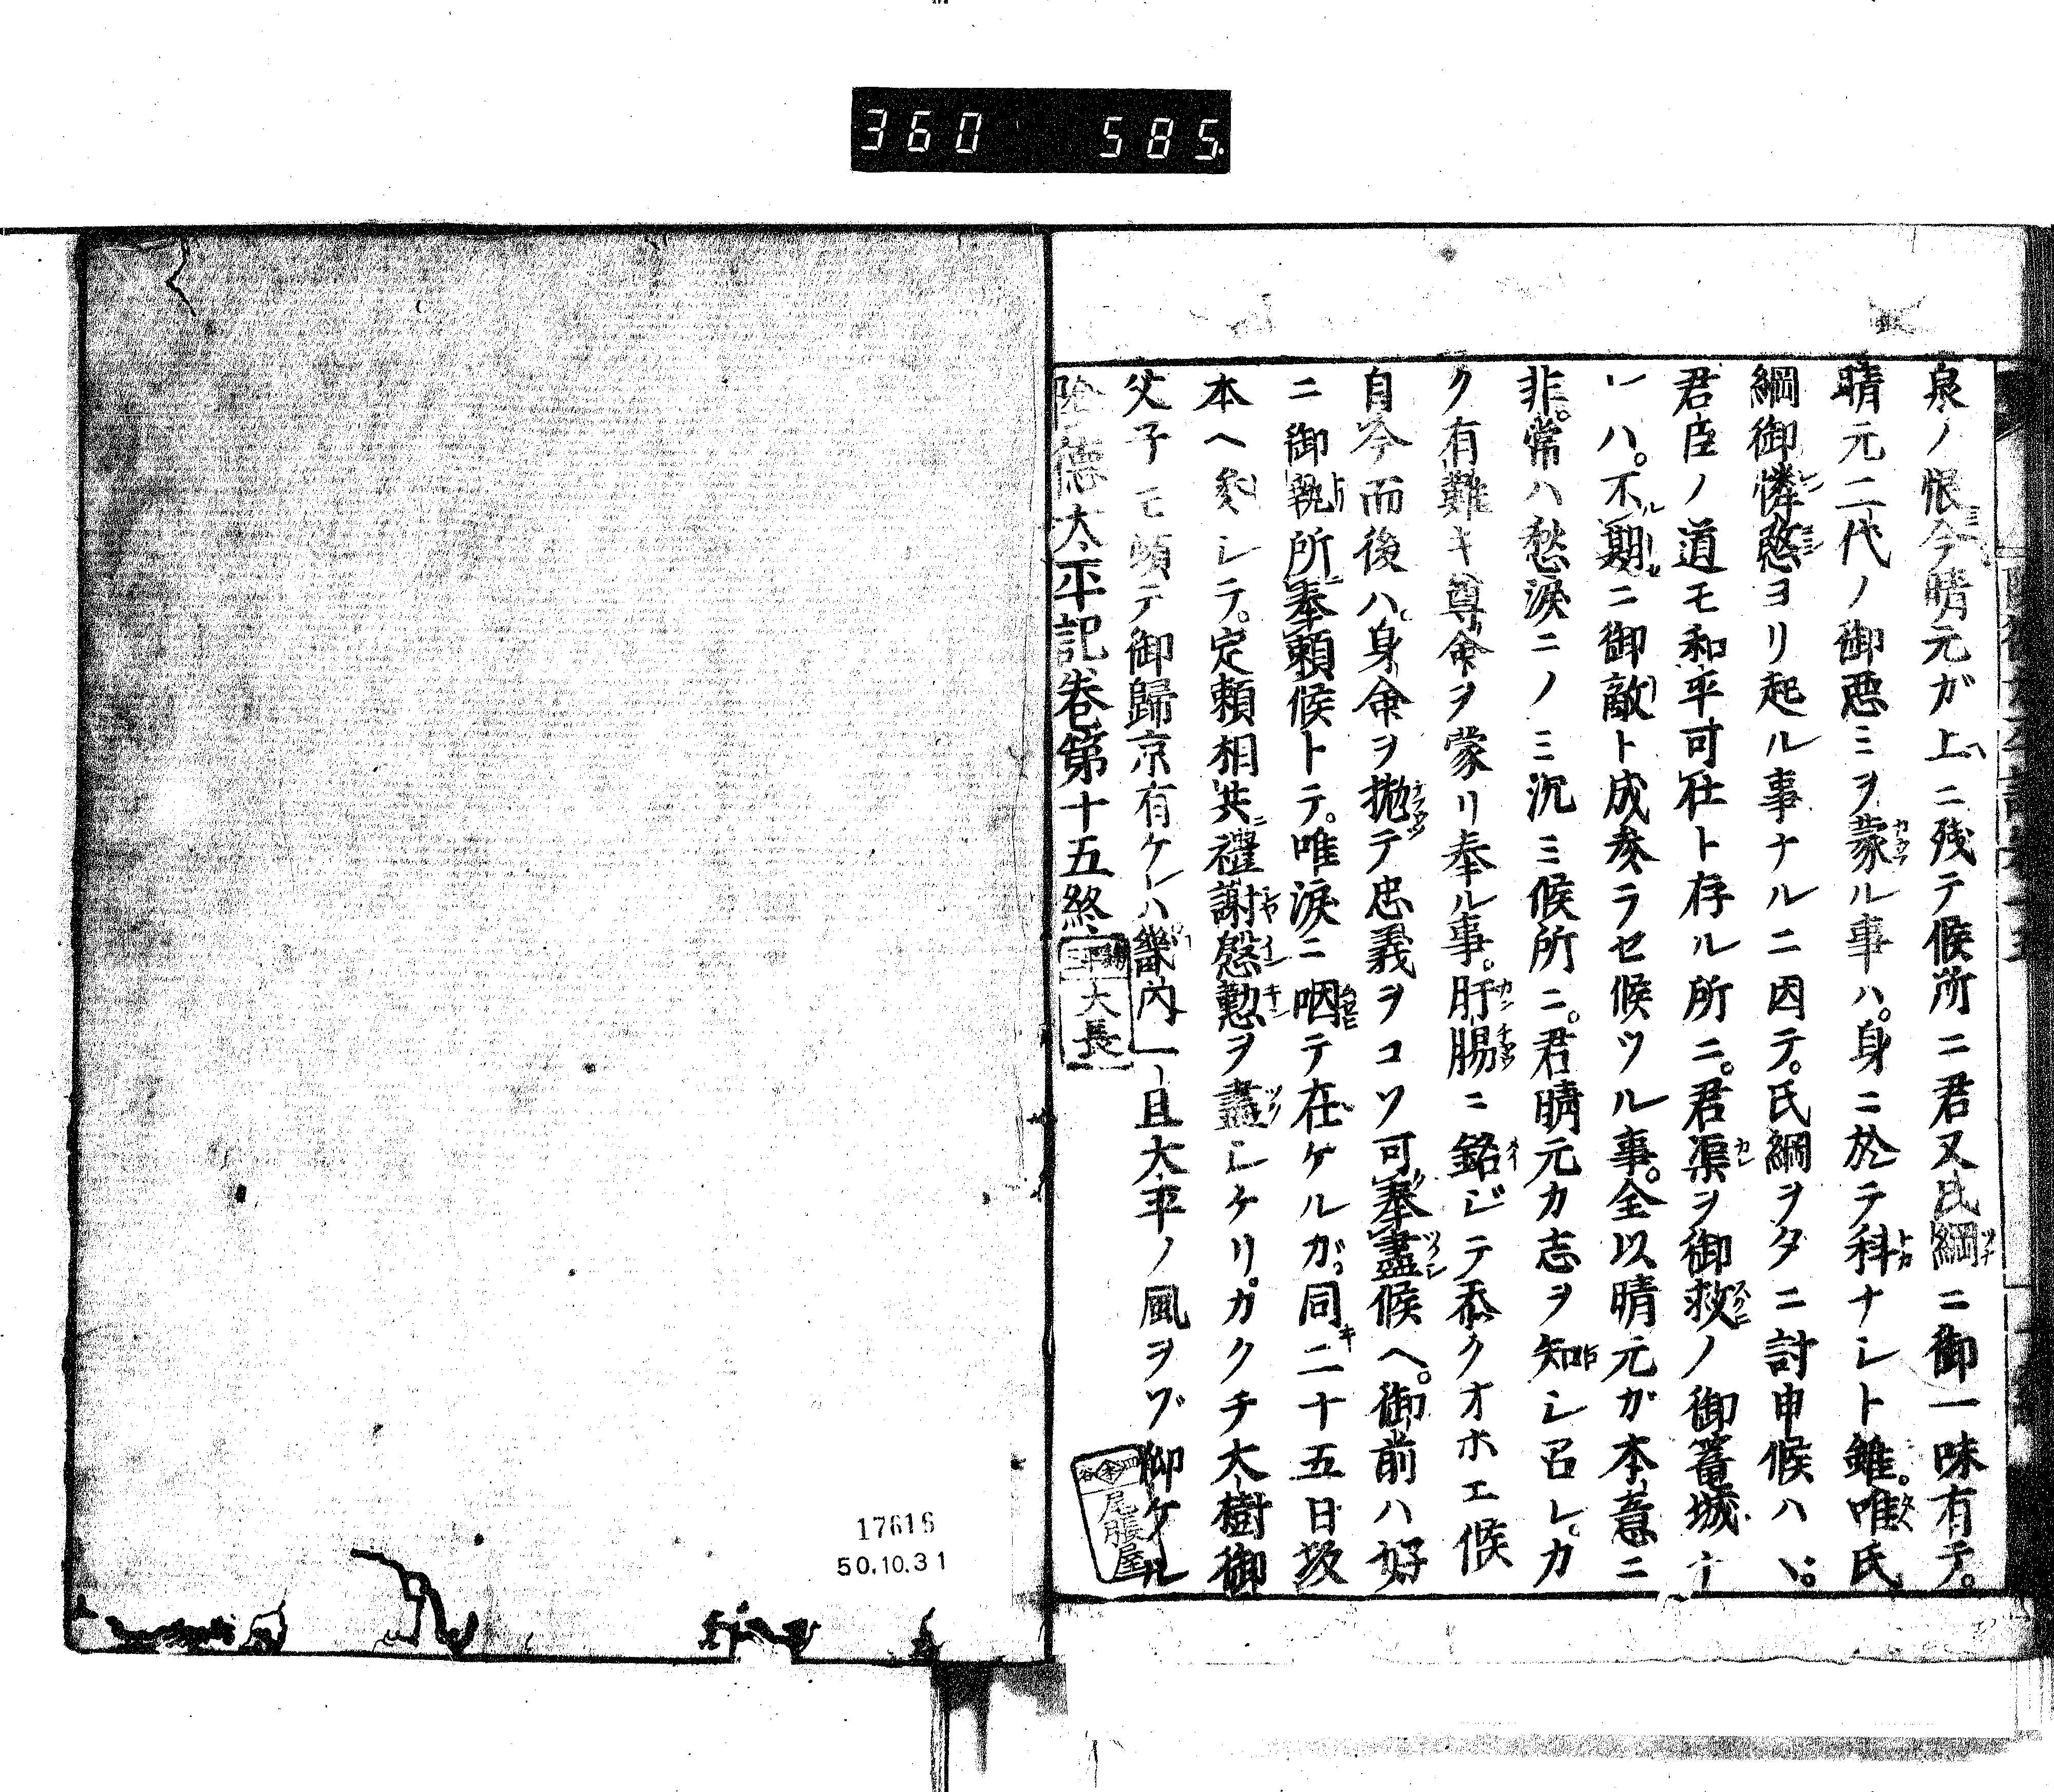 360 585
泉ノ恨今晴元ガ上ニ残テ候所ニ君又氏綱ニ御一味有テ。
晴元二代ノ御悪ミヲ蒙ル事ハ。身ニ於テ科ナシト雖。唯氏
綱御憐愍ヨリ起ル事ナルニ因テ。氏綱ヲタニ討申候ハヽ。
君臣ノ道モ和平可仕ト存ル所ニ。君渠ヲ御救ノ御篭城ナ
レハ。不期ニ御敵ト成参ラセ候ツル事。全以晴元ガ本意ニ
非。常ハ愁涙ニノミ沉ミ候所ニ。君晴元カ志ヲ知シ召レ。カ
ク有難キ尊命ヲ蒙リ奉ル事。肝腸ニ銘ジテ忝クオホエ候
自今而後ハ。身命ヲ抛テ忠義ヲコソ可奉盡候ヘ。御前ハ好
ニ御執所奉頼候トテ。唯涙ニ咽テ在ケルガ。同二十五日坂
本ヘ参シテ。定頼相共禮謝慇懃ヲ盡シケリ。カクチ大樹御
父子モ頓テ御歸京有ケレハ畿内一且太平ノ風ヲゾ仰ケル
陰徳太平記巻第十五終
大長
尾張屋
17616
50.10.31